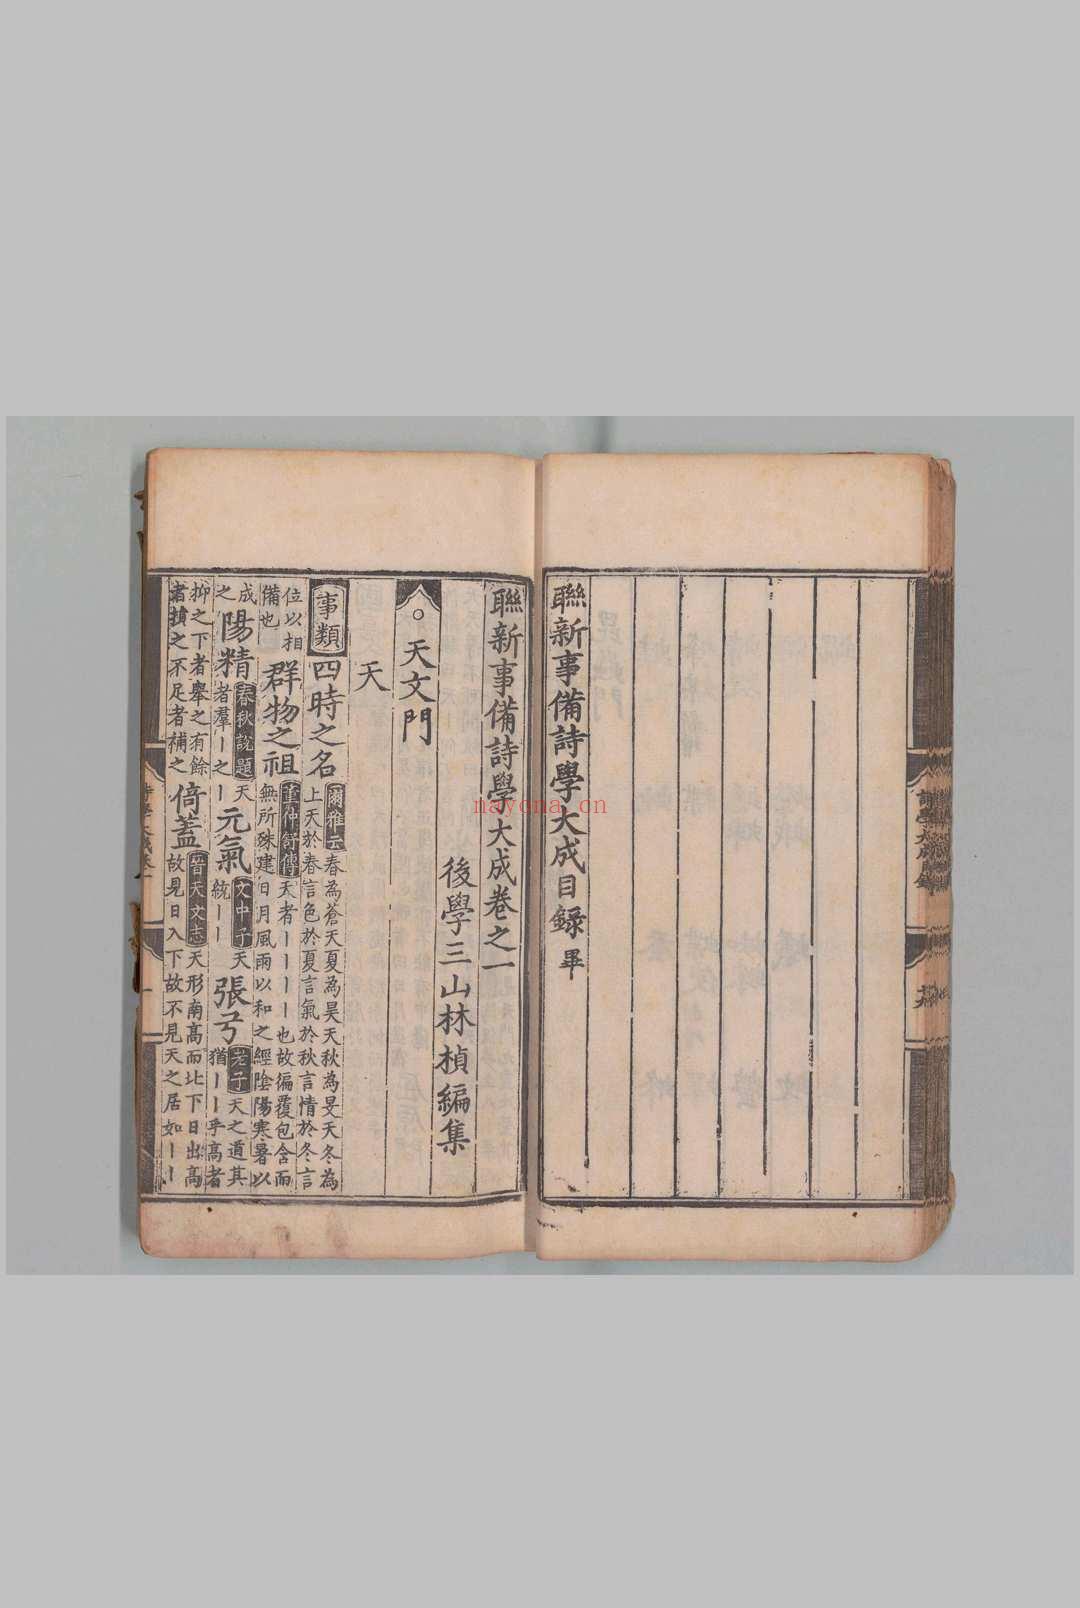 聮新事備詩學大成目録畢
詩學大成目録
聮新事備詩學大成卷之一
後學三山林楨編集
。天文門
天
事類 四時之名 爾雅云春為蒼天夏為昊天秋為旻天冬為上天於春言色於夏言氣於秋言情於冬言
位以相備也 群物之祖 董仲舒傳天者丨丨丨丨也故徧覆包含而無所殊建日月風雨以和之經陰陽寒暑以
成之 陽精 春秋說題天者羣丨之丨 元氣 文中子天統丨丨 張弓 老子天之道其猶丨丨乎高者
抑之下者舉之有餘者損之不足者補之 倚蓋 晉天文志天形南髙而北下日出髙故見日入下故不見天之居如丨丨
nayona.cn